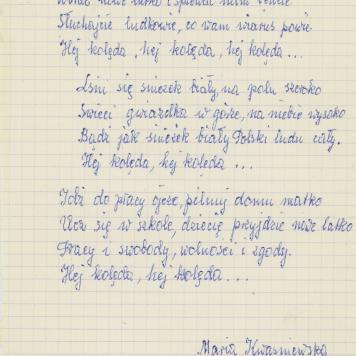 Słuchajcie ludkowie, co wam wiarus powie
Hej kolęda, hej kolęda, hej kolęda...
Lśni się śnieżek biały, na polu szeroko
Świeci gwiazdka w górze, na niebie wysoko
Bądź jak śnieżek biały Polski ludu cały.
Hej kolęda, hej kolęda...
Idź do pracy ojcze, pilnuj domu matko
Ucz się w szkole, dziecię przyjdzie nowe latko
Pracy i swobody, wolności i zgody.
Hej kolęda, hej kolęda...
Maria Kwaśniewska